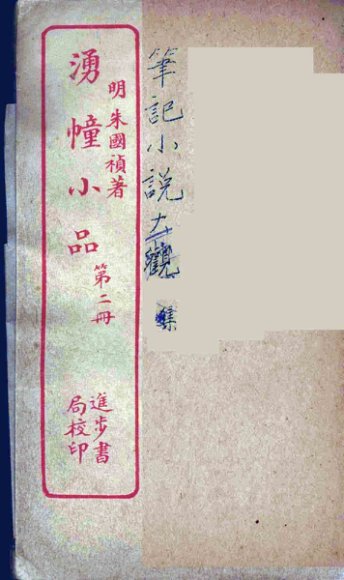 筆記小說大觀
集
明朱國禎著
湧幢小品
第二冊
進步書
局校印